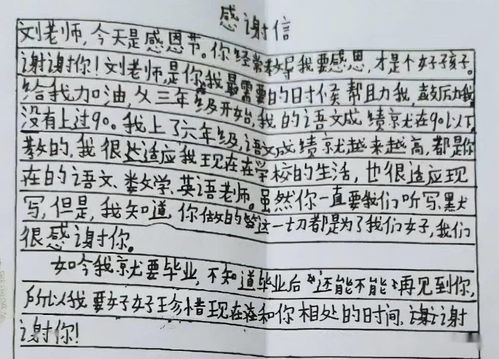 感谢信
刘老师,今天是感恩节。你经常教导我要感恩,才是个好孩子。
谢谢你!刘老师,是你我最需要的时候帮助我,鼓励我
给我加油,从三年级开始,我的语文成绩就在90以下
没有上过90。我上了六年级,语文成绩就越来越高,都是你
教的,我很适应我现在在学校的生活,也很适应现
在的语文、数学、英语老师。虽然你一直要我们听写,默
写,但是,我知道,你做的这一切都是为了我们好,我们
很感谢你。
如今我就要毕业,不知道毕业后还能不能再见到你,
所以我要好好珍惜现在和你相处的时间,谢谢
谢你!